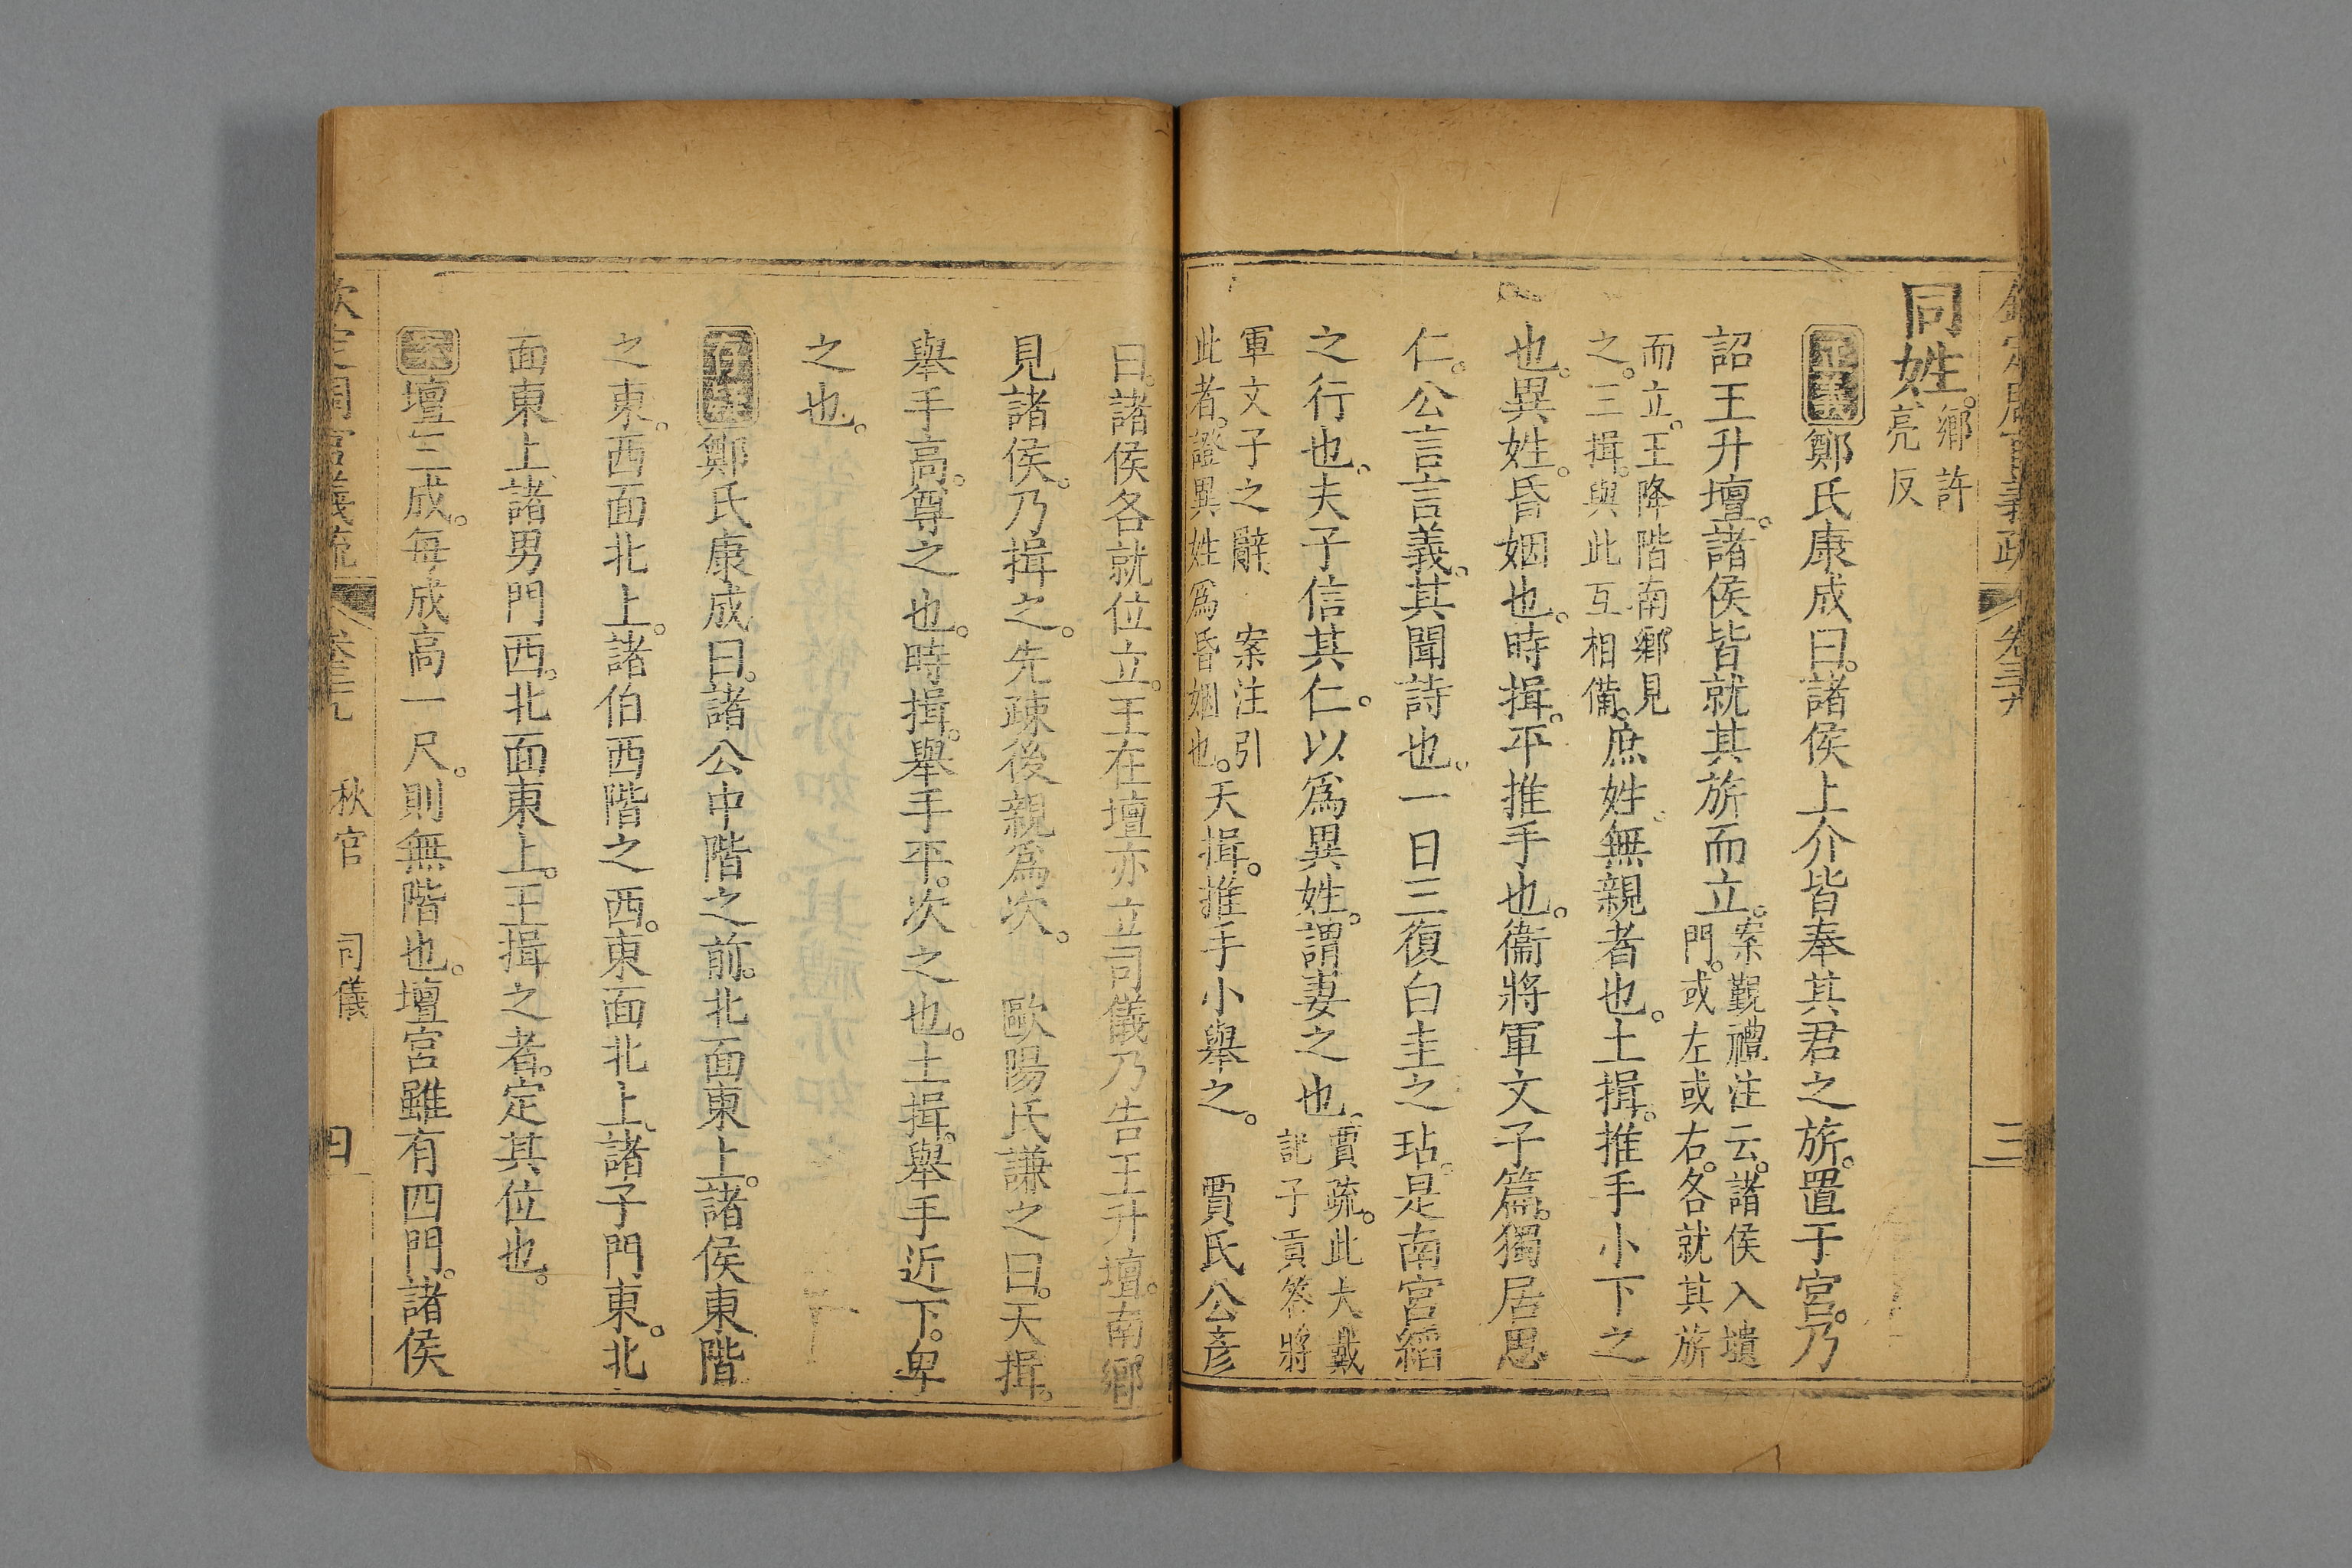 欽定周官義疏 卷三十九 三
同姓。鄉許亮反
正義鄭氏康成曰。諸侯上介皆奉其君之旂。置于宮。乃
詔王升壇。諸侯皆就其旂而立。案覲禮注云。諸侯入壝門。或左或右。各就其旂
而立。王降階南鄉見之。三揖。與此互相備。庶姓。無親者也。土揖。推手小下之
也。異姓。昏姻也。時揖。平推手也。衞將軍文子篇。獨居思
仁。公言言義。其聞詩也。一日三復白圭之玷。是南宮縚
之行也。夫子信其仁。以爲異姓。謂妻之也。賈疏。此大戴記子貢答將
軍文子之辭。 案注引此者。證異姓爲昏姻也。天揖。推手小舉之。 賈氏公彥
曰。諸侯各就位立。王在壇亦立。司儀乃告王升壇。南鄉
見諸侯。乃揖之。先疎後親爲次。 歐陽氏謙之曰。天揖。
舉手高。尊之也。時揖。舉手平。次之也。土揖。舉手近下。卑
之也。
存疑鄭氏康成曰。諸公中階之前。北面東上。諸侯東階
之東。西面北上。諸伯西階之西。東面北上。諸子門東。北
面東上。諸男門西。北面東上。王揖之者。定其位也。
案壇三成。每成高一尺。則無階也。壇宮雖有四門。諸侯
欽定周官義疏 卷三十九 秋官 司儀 四